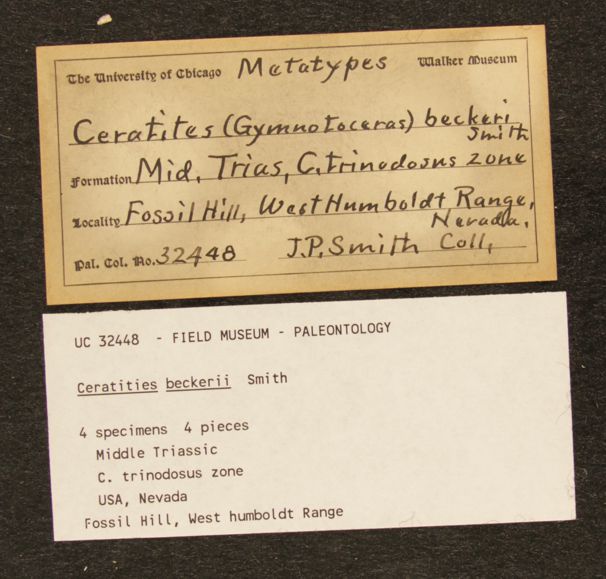 The University of Chicago Metatypes Walker Museum
Ceratites (Gymnotoceras) beckeri
Smith
Formation Mid, Trias, C. trinodosus zone
Locality Fossil Hill, West Humboldt Range,
Nevada.
Pal. Col. No. 32448 J.P. Smith Coll,
UC 32448 - FIELD MUSEUM - PALEONTOLOGY
Ceratities beckerii Smith
4 specimens 4 pieces
Middle Triassic
C. trinodosus zone
USA, Nevada
Fossil Hill, West humboldt Range